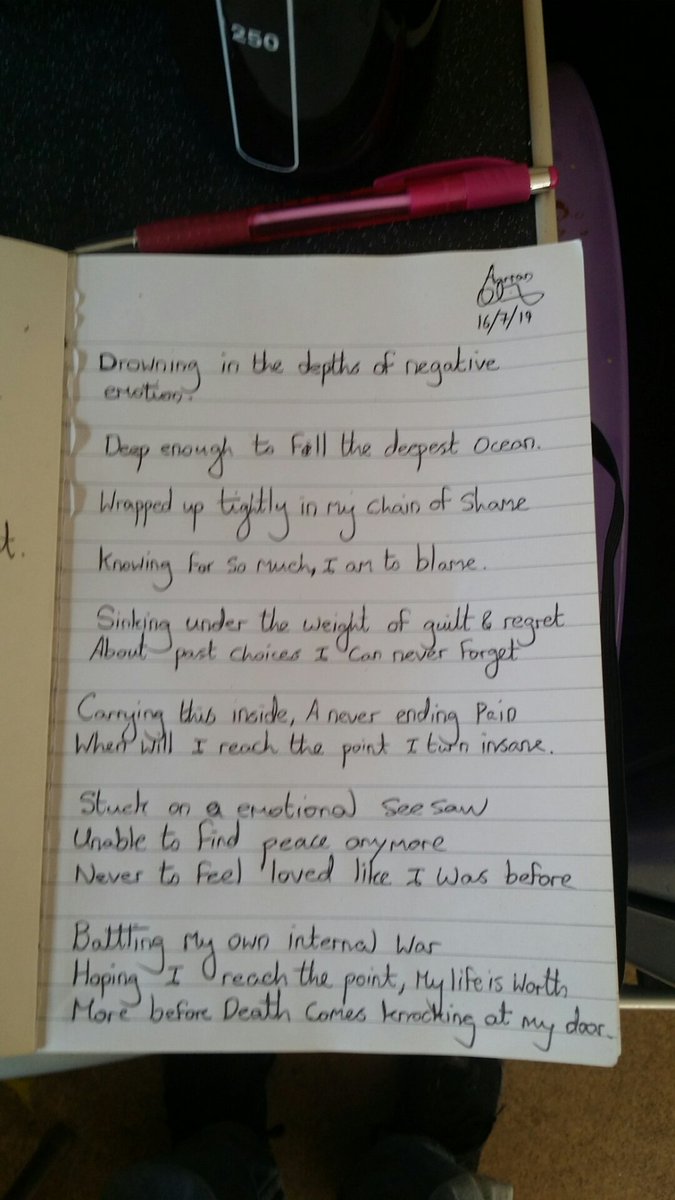 250
16/7/19
Drowning in the depths of negative
emotion.
Deep enough to fill the deepest Ocean.
Wrapped up tightly in my chain of shame
Knowing for so much, I am to blame.
Sinking under the weight of guilt & regret
About past choices I can never forget
Carrying this inside, A never ending Pain
When will I reach the point I turn insane.
t.
Stuck on a emotional see saw
Unable to find peace anymore
Never to feel loved like I was before
Battling my own internal war
Hoping I reach the point, My life is worth
More before Death comes knocking at my door.